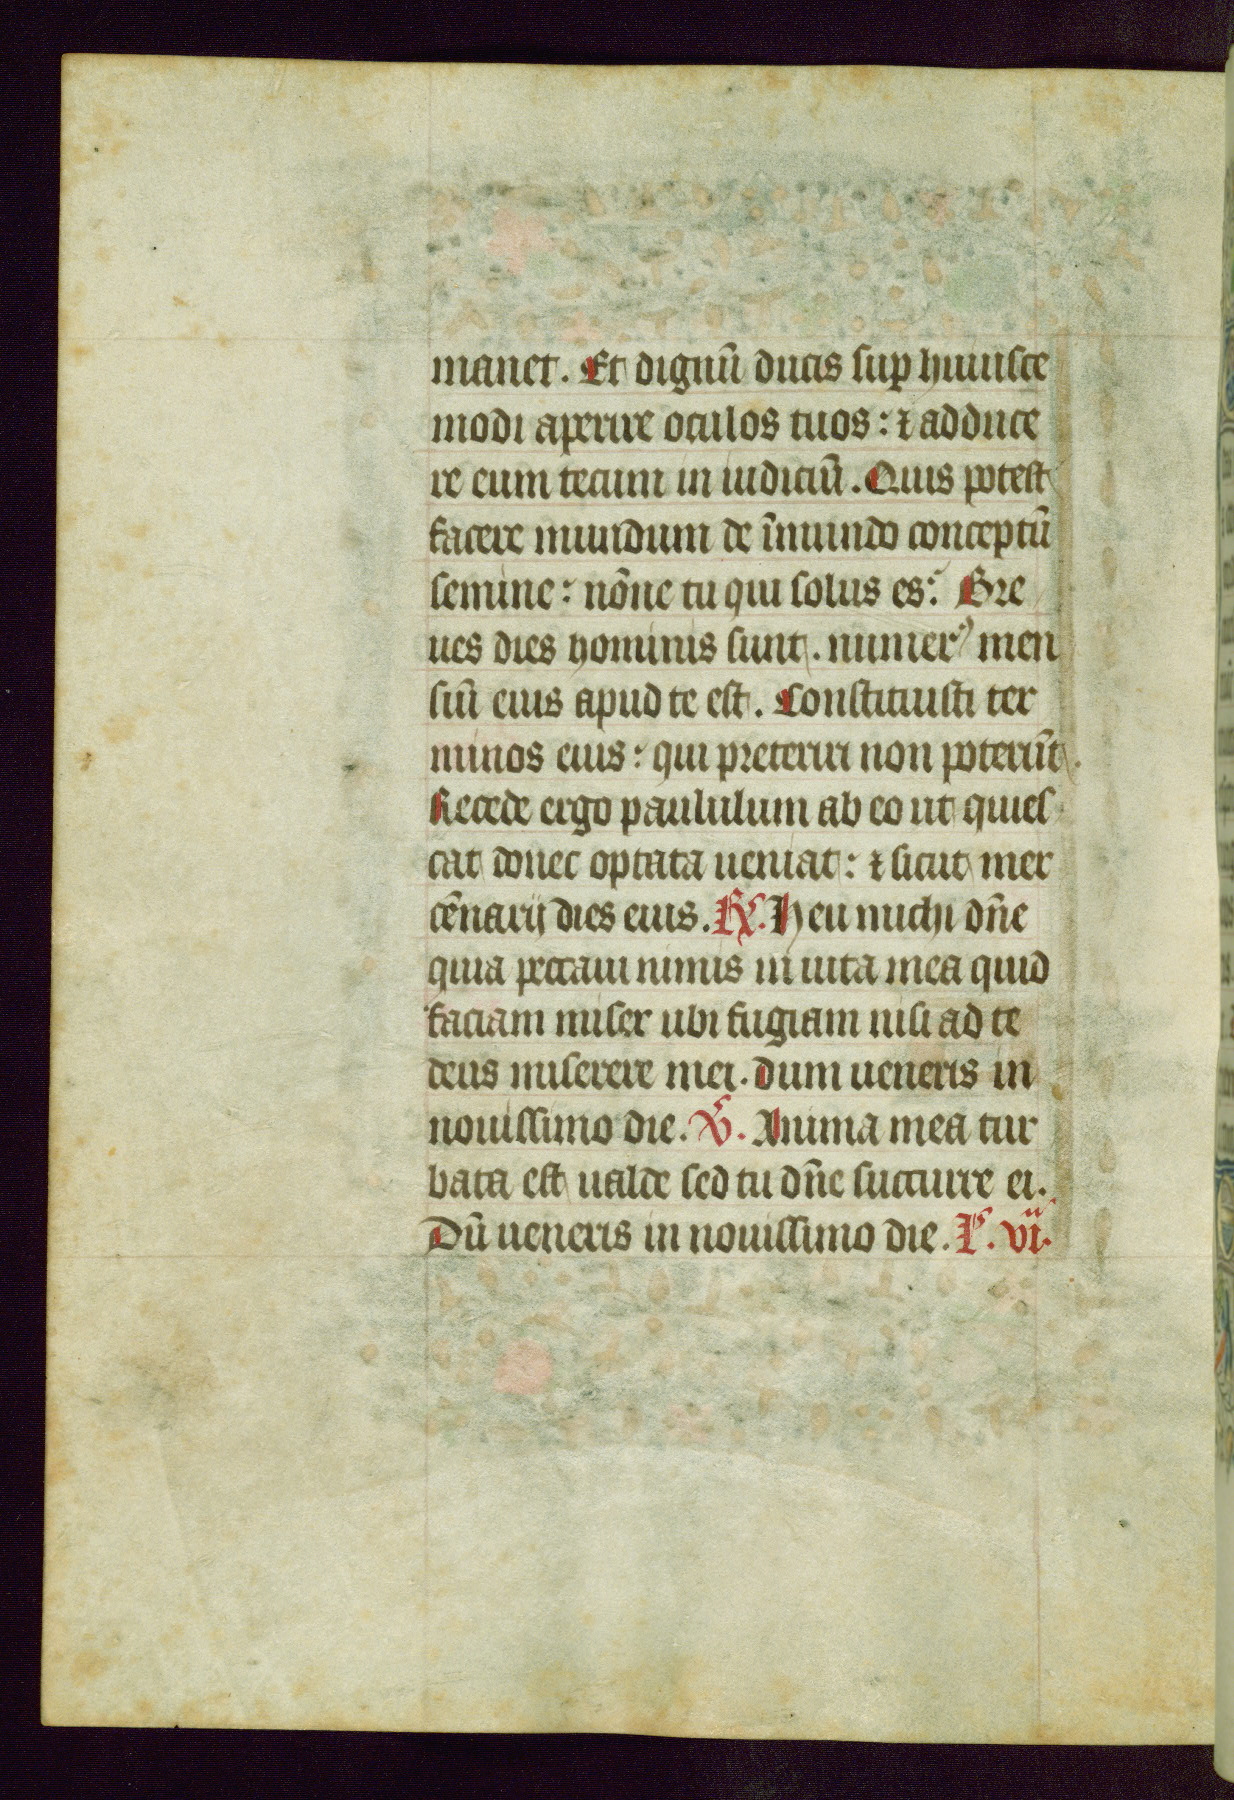 manet. Et dignū ducis sup huiusce
modi aperire oculos tuos: ⁊ adduce
re eum tecum in iudiciū. Quis potest
facere mundum de īmundo conceptū
semine: nōne tu qui solus es: Bre
ues dies hominis sunt. numerꝰ men
siū eius apud te est. Constituisti ter
minos eius: qui preteriri non poterūt.
Recede ergo paululum ab eo ut quies
cat donec optata ueniat: ⁊ sicut mer
cēnarij dies eius. R. Heu michi dn̄e
quia peccaui nimis in uita mea quid
faciam miser ubi fugiam nisi ad te
deus miserere mei. dum ueneris in
nouissimo die. V. Anima mea tur
bata est ualde sed tu dn̄e succurre ei.
Dū ueneris in nouissimo die. P. vi.